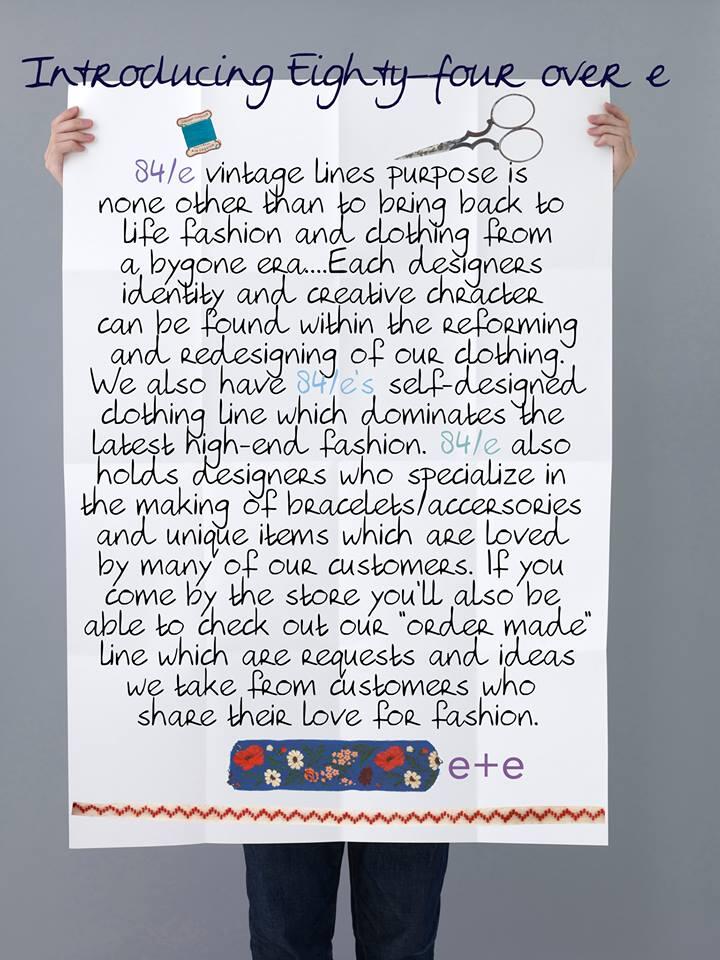 Introducing Eighty-four over e
84/e vintage lines purpose is
none other than to bring back to
life fashion and clothing from
a bygone era....Each designers
identity and creative chracter
can be found within the reforming
and redesigning of our clothing.
We also have 84/e's self-designed
clothing line which dominates the
latest high-end fashion. 84/e also
holds designers who specialize in
the making of bracelets/accersories
and unique items which are loved
by many of our customers. If you
come by the store you'll also be
able to check out our "order made"
line which are requests and ideas
we take from customers who
share their love for fashion.
e+e